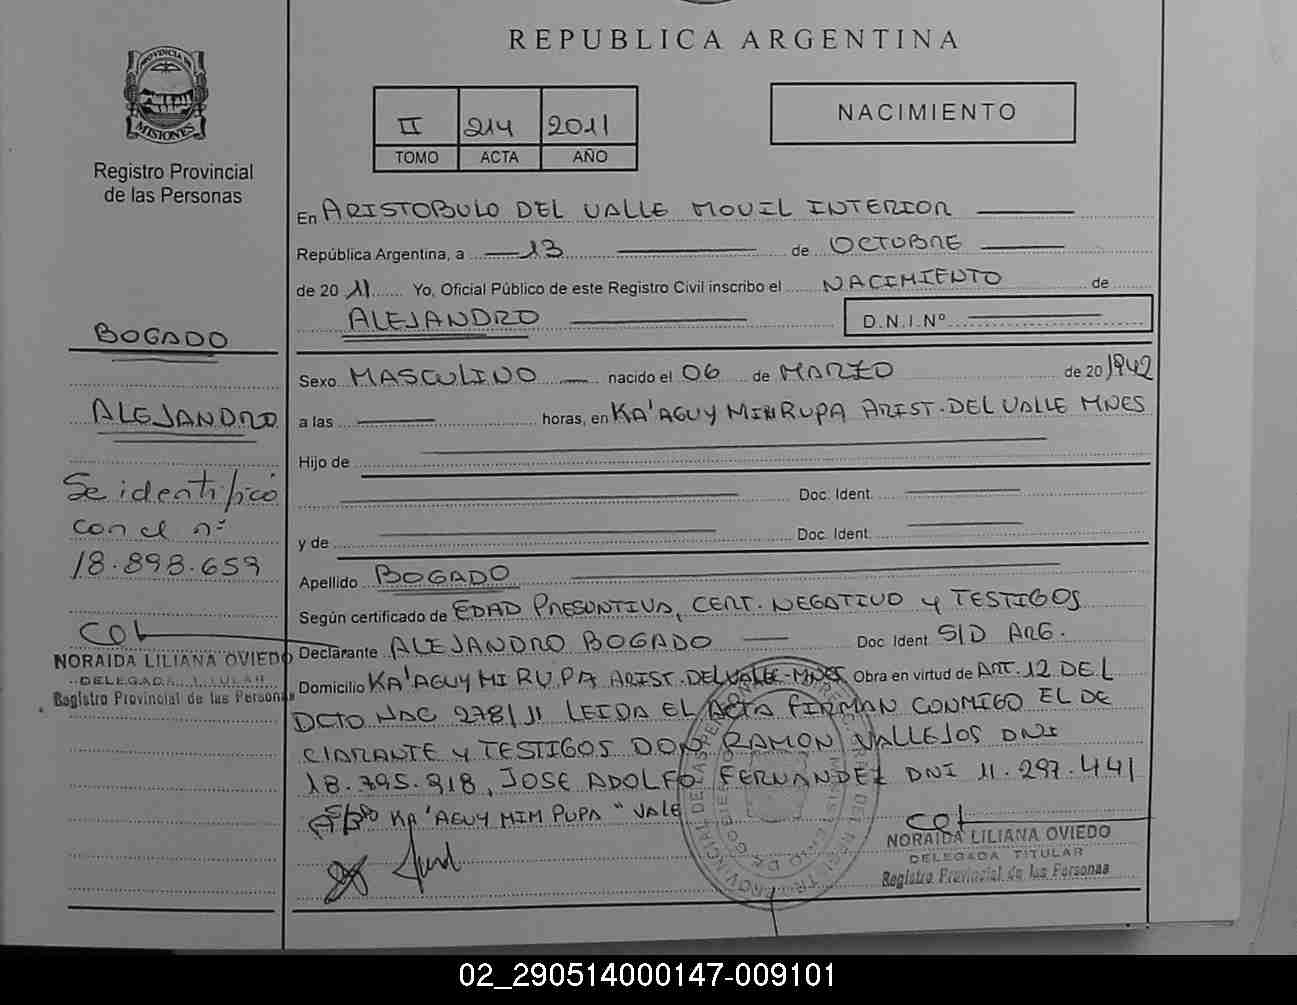 REPUBLICA ARGENTINA
PROVINCIA DE
MISIONES
Registro Provincial
de las Personas
II 214 2011
TOMO ACTA AÑO
NACIMIENTO
En ARISTOBULO DEL VALLE MOVIL INTERIOR
República Argentina, a 13 de OCTOBRE
de 20 11 Yo, Oficial Público de este Registro Civil inscribo el NACIMIENTO de
ALEJANDRO D.N.I.Nº
BOGADO
ALEJANDRO
Se identificó
con el nº
18.898.659
COL
NORAIDA LILIANA OVIEDO
DELEGADA TITULAR
Registro Provincial de las Personas
Sexo MASCULINO nacido el 06 de MARZO de 20 1942
a las horas, en KA'AGUY MINRUPA ARIST. DEL VALLE MNES
Hijo de
Doc. Ident.
y de Doc. Ident.
Apellido BOGADO
Según certificado de EDAD PRESUNTIVA, CERT. NEGATIVO y TESTIGOS
Declarante ALEJANDRO BOGADO Doc Ident S/D ARG.
Domicilio KA'AGUY MI RUPA ARIST. DEL VALLE-MNES Obra en virtud de ART. 12 DEL
DCTO NAC 278/11 LEIDA EL ACTA FIRMAN CONMIGO EL DE
CLARANTE y TESTIGOS DON RAMON VALLEJOS DNI
18.795.918, JOSE ADOLFO FERNANDEZ DNI 11.297.441
KA'AGUY MIM PUPA" VALE
COL
NORAIDA LILIANA OVIEDO
DELEGADA TITULAR
Registro Provincial de las Personas
02_290514000147-009101